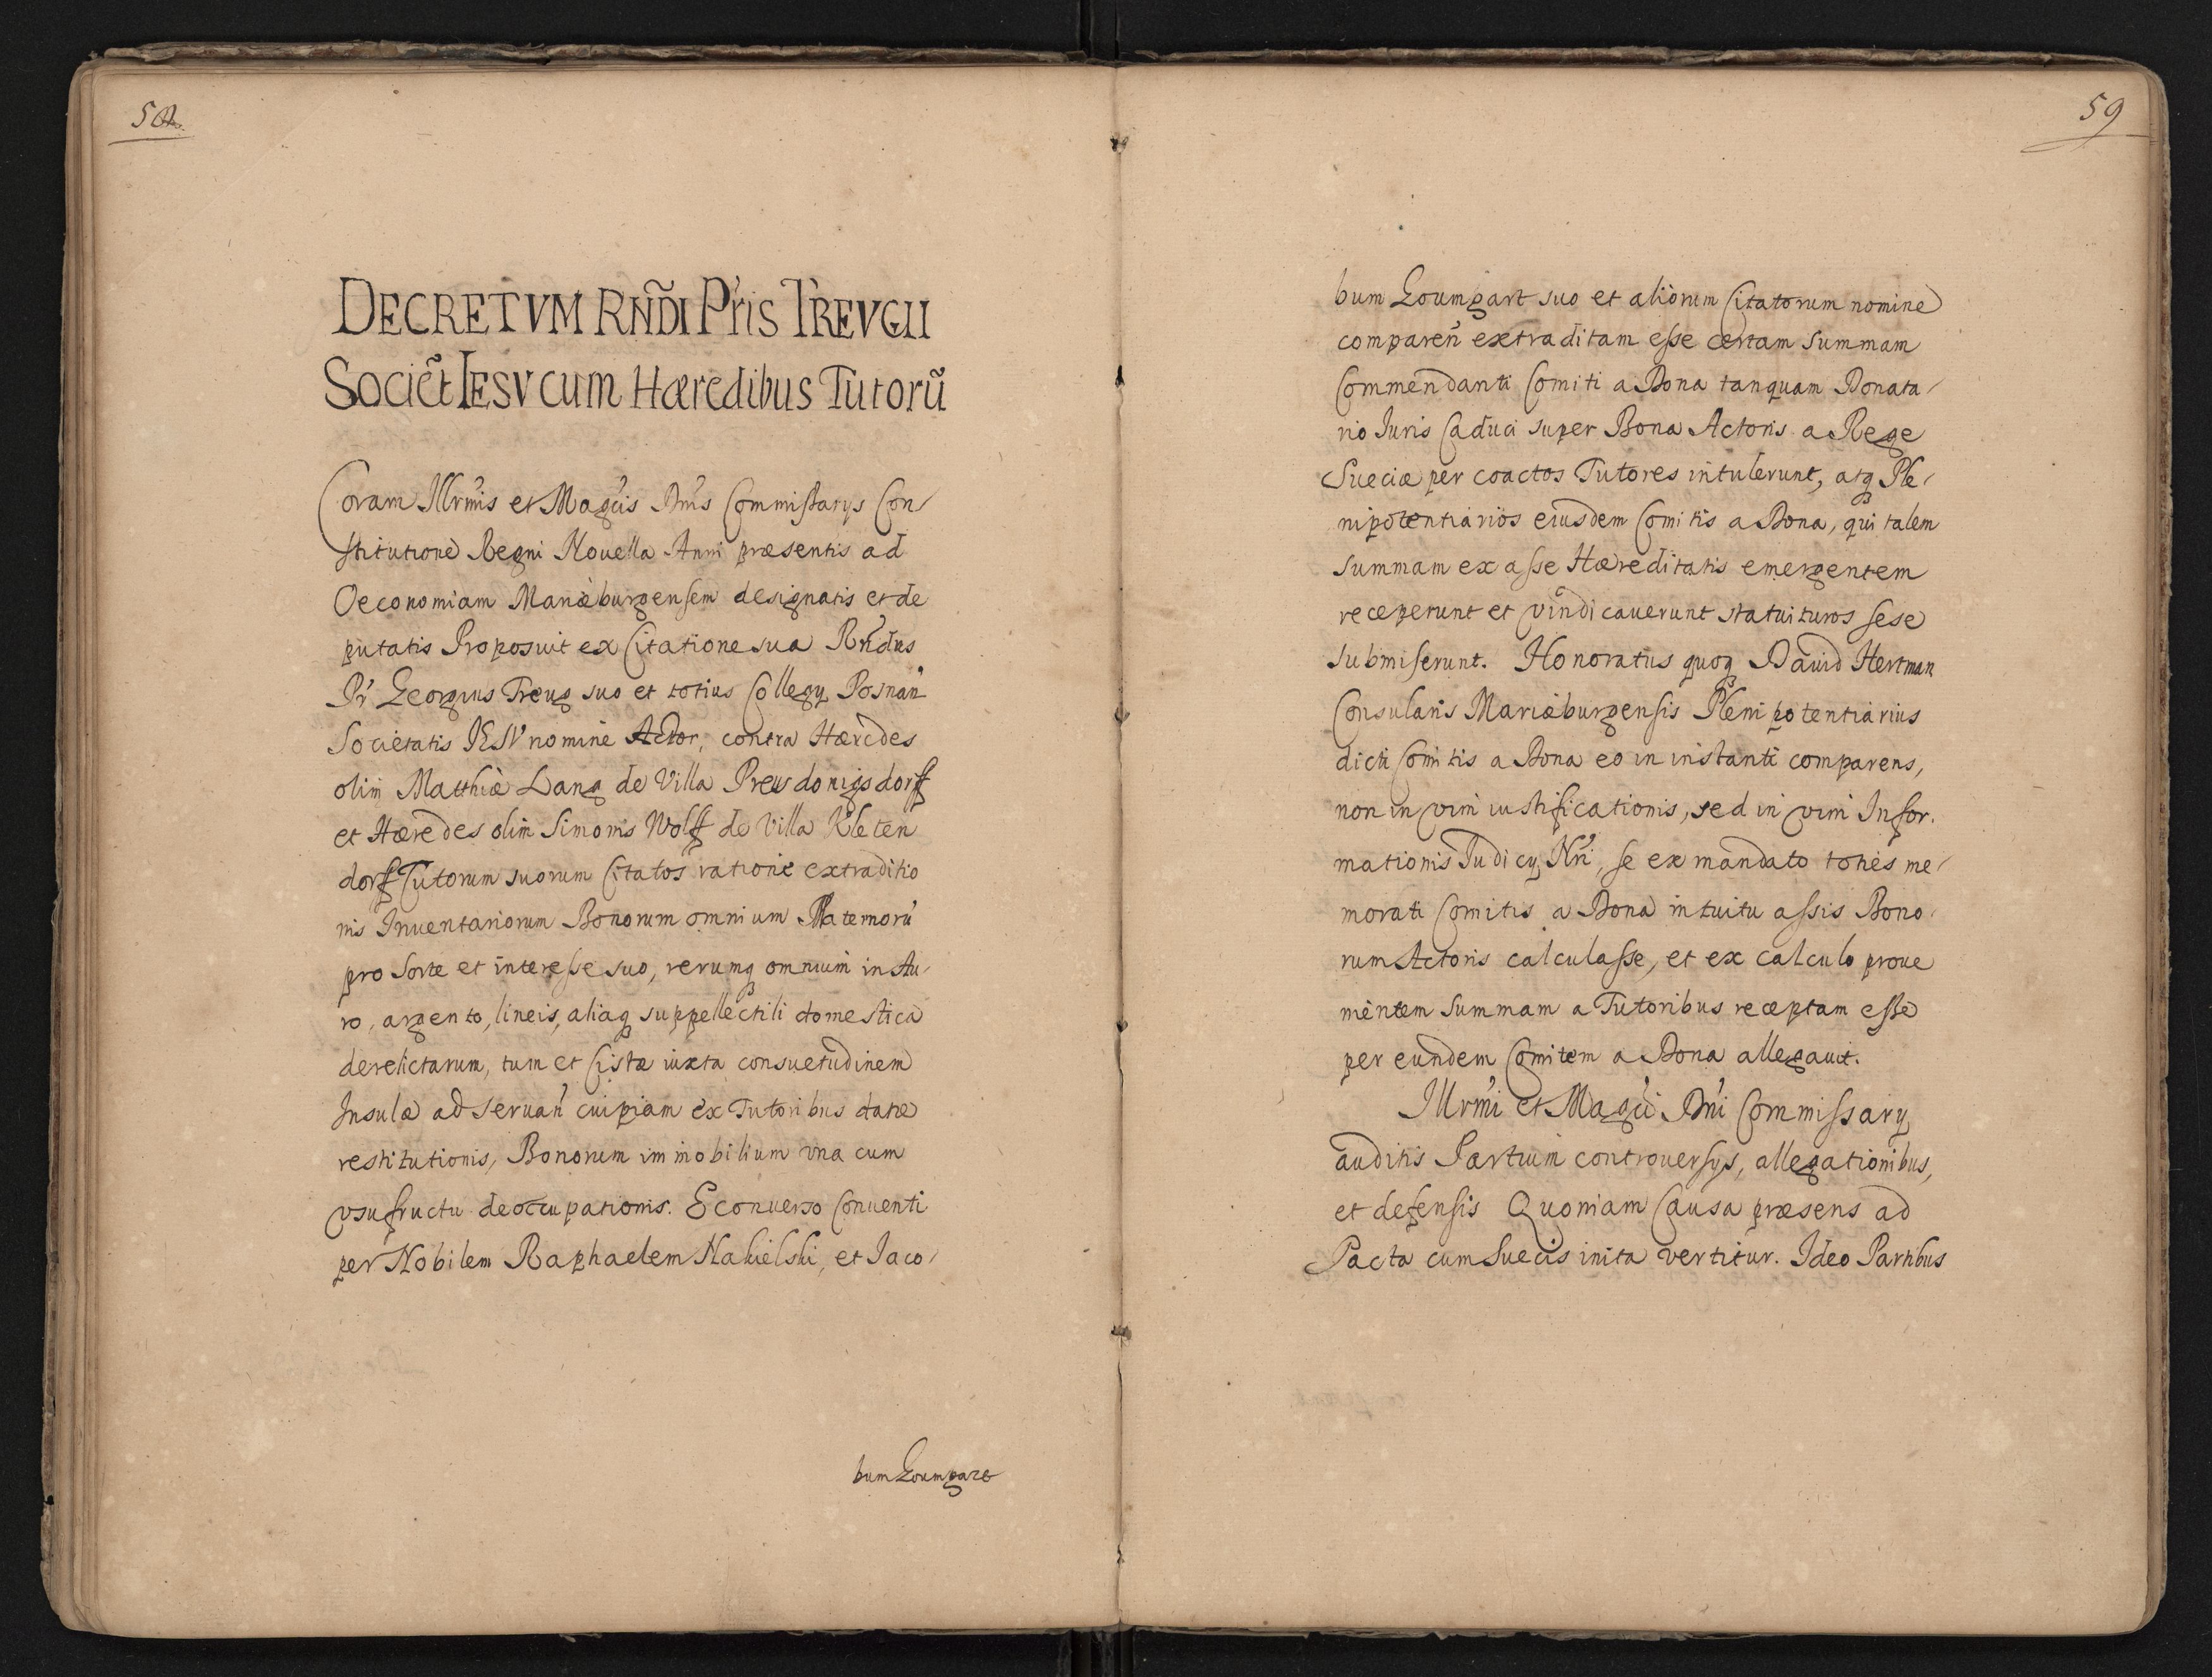 58
DECRETVM RÑDI Pris TREVGII
Sociẽt IESV cum Hæredibus Tutorũ
Coram Illrmis et Magcis Dnis Commissarys Con-
stitutione Regni Nouella Anni præsentis ad
Oeconomiam Mariæburgensem designatis et de
putatis Proposuit ex Citatione sua Rndus
Pr Georgius Treug suo et totius Collegy Posnan
Societatis IESV nomine Actor, contra Hæredes
olim Matthiæ Lang de Villa
et Hæredes olim Simonis Wolff de Villa Kleten
dorff Tutorum suorum Citatos ratione extraditio
nis Inuentariorum Bonorum omnium Maternorũ
pro Sorte et interesse suo, rerumq omnium in Au-
ro, argento, lineis, aliaq suppellectili domestica
derelictarum, tum et Cistæ iuxta consuetudinem
Insulæ ad seruan cuipiam ex Tutoribus datæ
restitutionis, Bonorum immobilium vna cum
vsufructu deoccupationis. Econuerso Conuenti
per Nobilem Raphaelem Nakielski, et Iaco-
bum Goumgart
59
bum Goumgart suo et aliorum Citatorum nomine
comparen extraditam esse certam Summam
Commendanti Comiti a Dona tanquam Donata-
rio Iuris Caduci super Bona Actoris a Rege
Sueciæ per coactos Tutores intulerunt, atq Ple-
nipotentiarios eiusdem Comitis a Dona, qui talem
Summam ex asse Hæreditatis emergentem
receperunt et vindicauerunt statuituros sese
submiserunt. Honoratus quoq Dauid Hertman
Consularis Mariæburgensis Plenipotentiarius
dicti Comitis a Dona eo in instanti comparens,
non in vim iustificationis, sed in vim Infor-
mationis Iudicy Nri, se ex mandato toties me-
morati Comitis a Dona intuitu assis Bono-
rum Actoris calculasse, et ex calculo proue
nientem Summam a Tutoribus receptam esse
per eundem Comitem a Dona allegauit.
Illrmi et Magci Dni Commissary
auditis Partium controuersys, allegationibus,
et defensis Quoniam Causa præsens ad
Pacta cum Suecis inita vertitur. Ideo Partibus